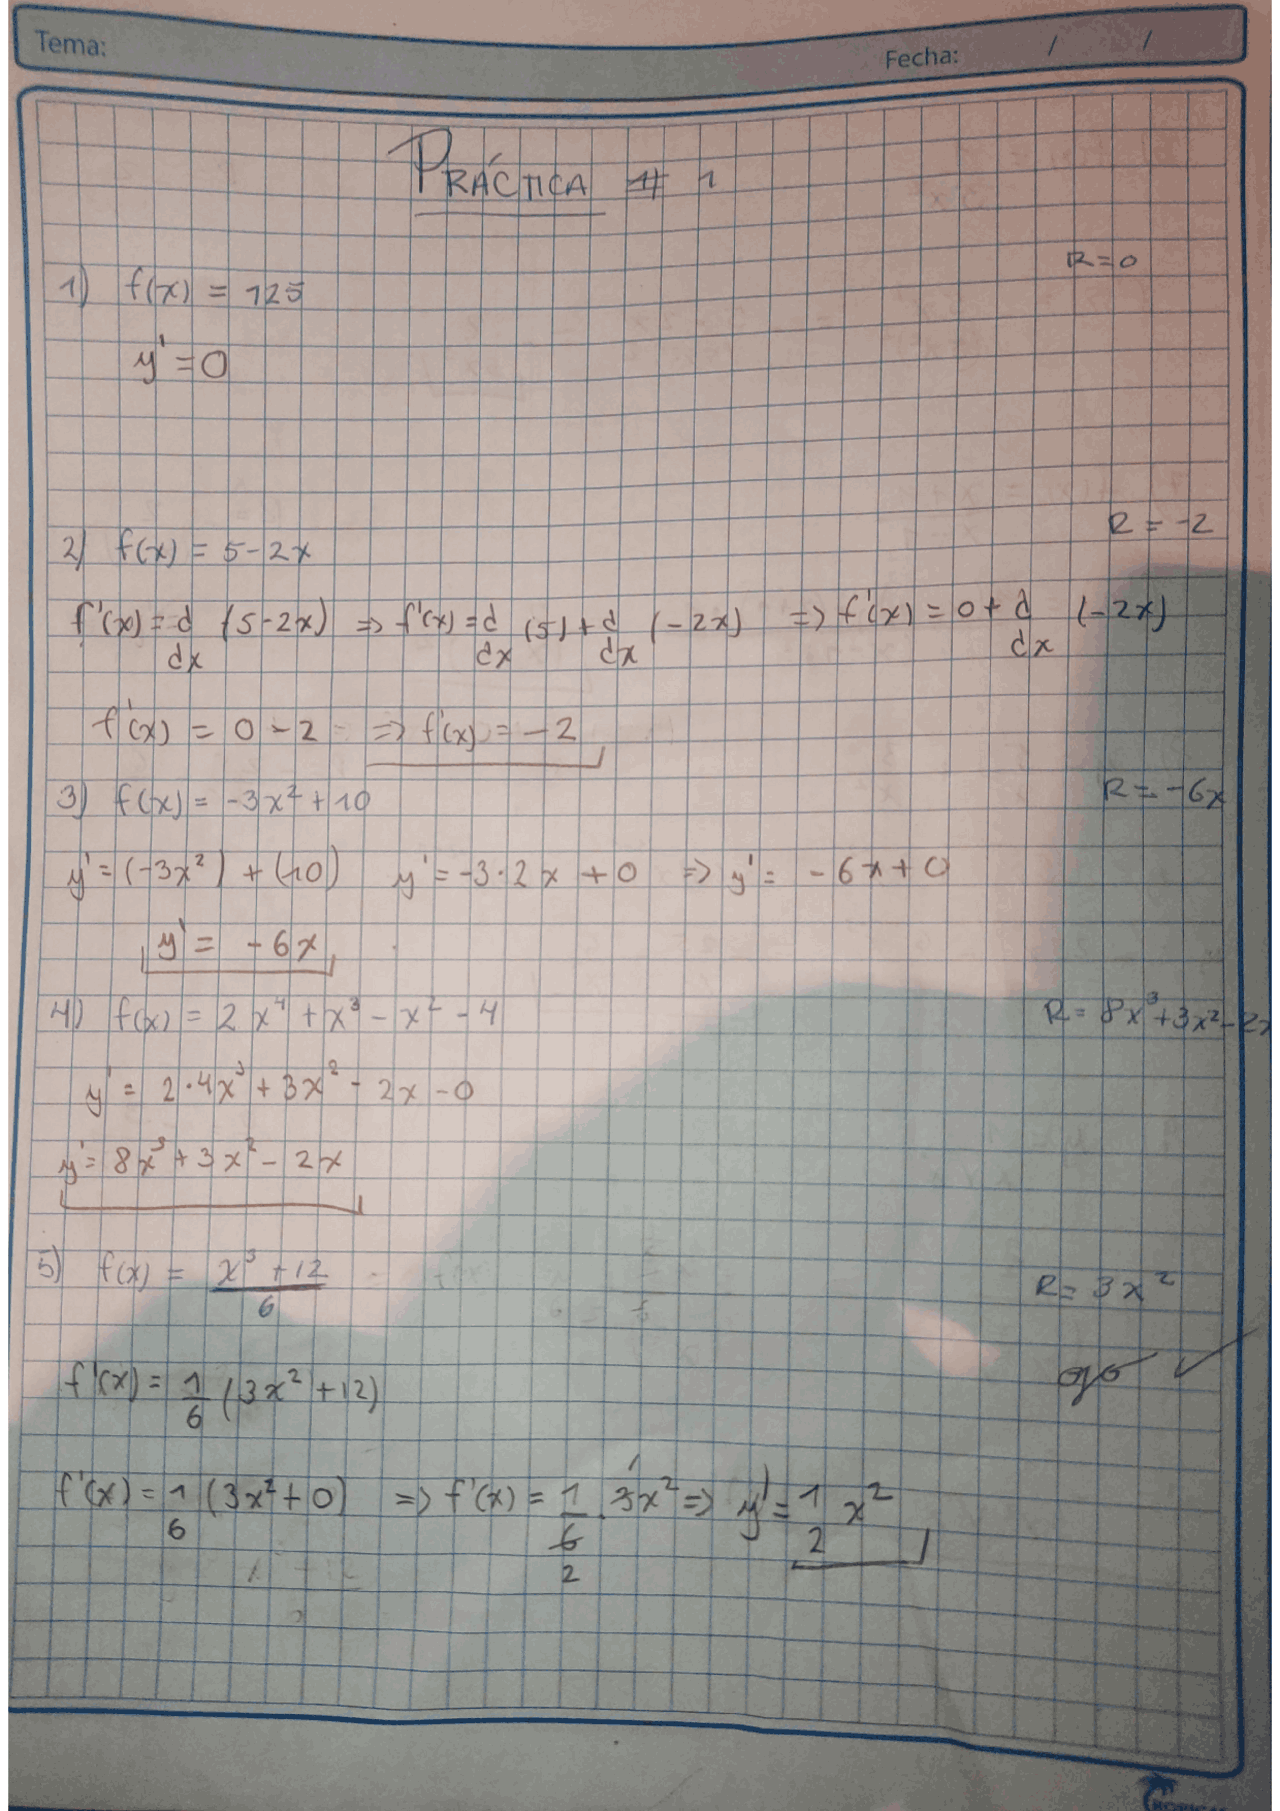 Tema: Fecha: / /
PRÁCTICA # 1
R=0
1) f(x) = 125
y' = 0
R = -2
2) f(x) = 5-2x
f'(x) = d/dx (5-2x) => f'(x) = d/dx (5) + d/dx (-2x) => f'(x) = 0 + d/dx (-2x)
f'(x) = 0 - 2 => f'(x) = -2
3) f(x) = -3x² + 10 R = -6x
y' = (-3x²) + (10) y' = -3·2x + 0 => y' = -6x + 0
y' = -6x
4) f(x) = 2x⁴ + x³ - x² - 4 R = 8x³+3x²-2x
y' = 2·4x³ + 3x² - 2x - 0
y' = 8x³ + 3x² - 2x
5) f(x) = x³ + 12 / 6 R = 3x²
f'(x) = 1/6 (3x² + 12)
f'(x) = 1/6 (3x² + 0) => f'(x) = 1/6 · 3x² => y' = 1/2 x²
1
2